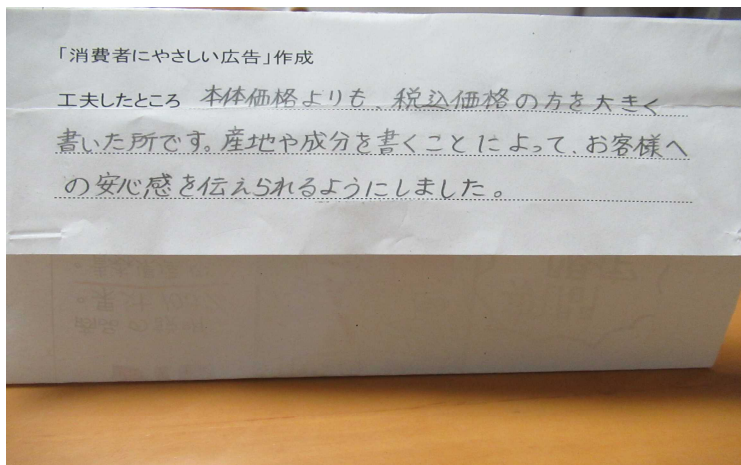 「消費者にやさしい広告」作成
工夫したところ 本体価格よりも、税込価格の方を大きく
書いた所です。産地や成分を書くことによって、お客様へ
の安心感を伝えられるようにしました。